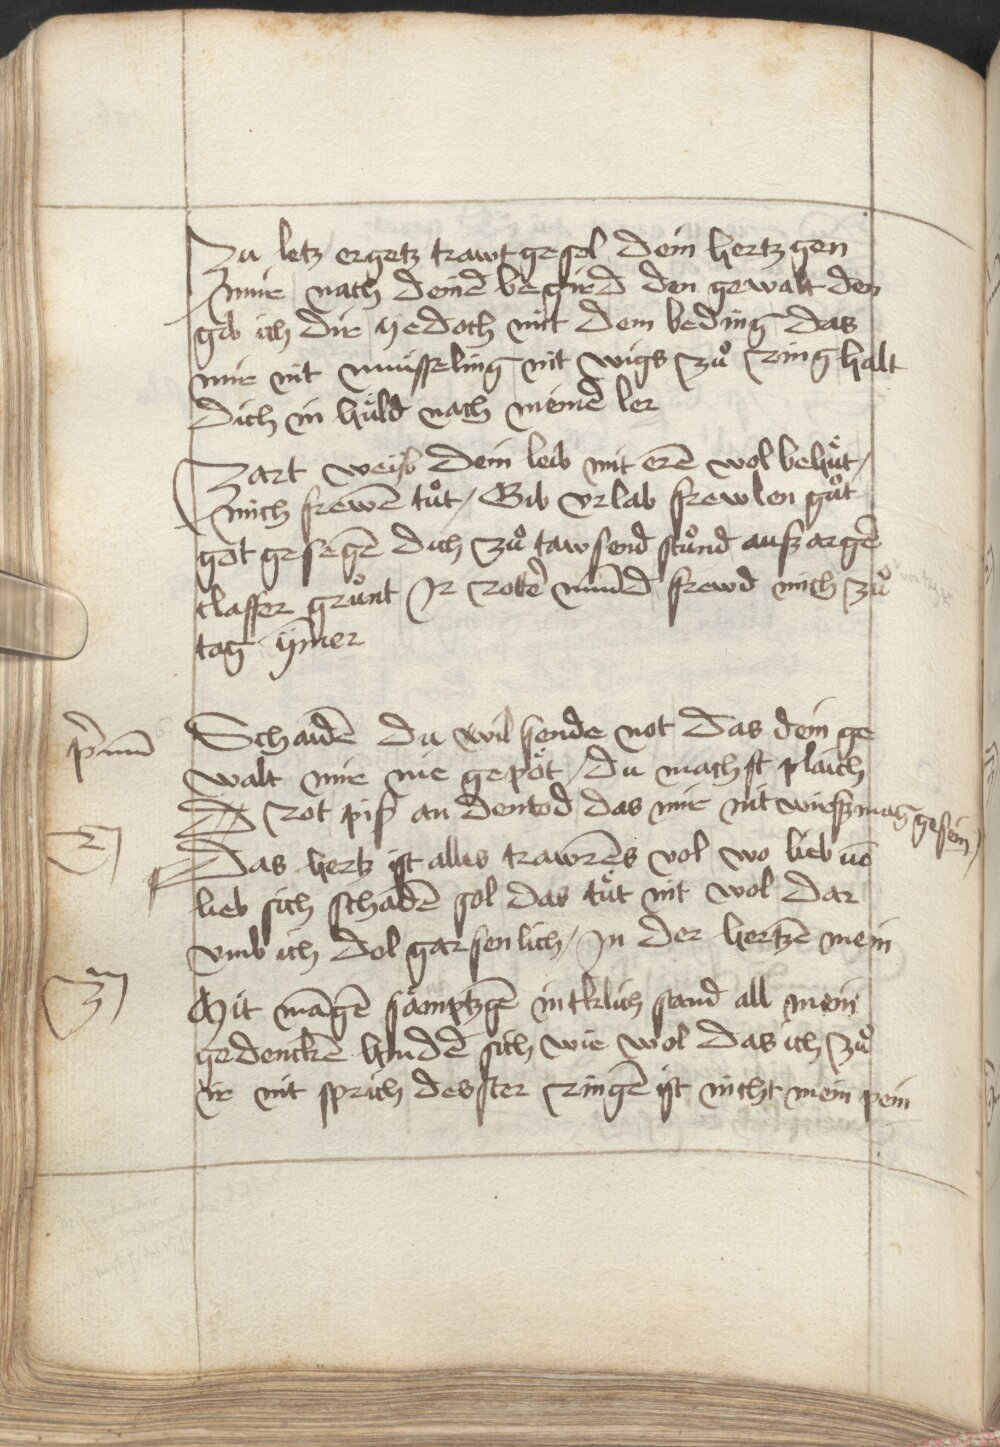 Zu letz ergetz trawt gesel dein hertz gen
mir nach deinē begird den gewalt den
gib ich dir yedoch mit dem beding das
mir nit müsseling nit wigs zů ring halt
dich in hůld nach meinē ler
Zart weib dein leib mit erē wol behůt /
mich frewē tůt / Gib vrlab frewlen gůt
got gesegē dich zů tawsend stůnd ausz argē
claffer grůnt Ir rotē mūnd frewd mich zů
tag ÿmer
p̄mū Schaidē du wil sende not das dein ge
walt mir nie gepöt / du machst plaich
rot pisz an dentod das mir nit wirsz mag gesein /
2 Das hertz ist alles trawrēs vol wo lieb uō
lieb sich schaidē sol das tůt nit wol dar
vmb ich dol gar senlich / In der hertzē mein
3 Mit māgē säwptzgē intklich stand all mein
gedenckē hindē sich wie wol das ich zů
ir nit sprich dester ringē ist nicht mein pein